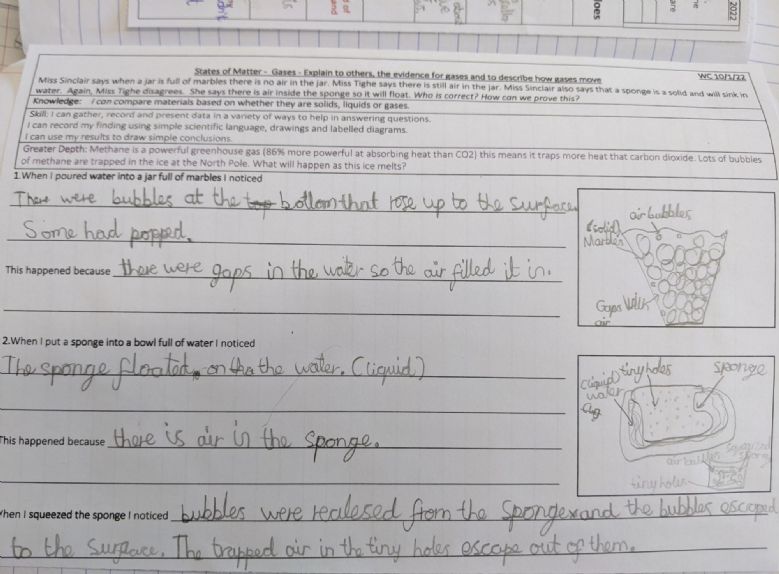 2022
States of Matter - Gases - Explain to others, the evidence for gases and to describe how gases move WC 10/1/22
Miss Sinclair says when a jar is full of marbles there is no air in the jar. Miss Tighe says there is still air in the jar. Miss Sinclair also says that a sponge is a solid and will sink in
water. Again, Miss Tighe disagrees. She says there is air inside the sponge so it will float. Who is correct? How can we prove this?
Knowledge: I can compare materials based on whether they are solids, liquids or gases.
Skill: I can gather, record and present data in a variety of ways to help in answering questions.
I can record my finding using simple scientific language, drawings and labelled diagrams.
I can use my results to draw simple conclusions.
Greater Depth: Methane is a powerful greenhouse gas (86% more powerful at absorbing heat than CO2) this means it traps more heat that carbon dioxide. Lots of bubbles
of methane are trapped in the ice at the North Pole. What will happen as this ice melts?
1.When I poured water into a jar full of marbles I noticed
There were bubbles at the top bottom that rose up to the surface.
Some had popped.
This happened because there were gaps in the water so the air filled it in.
air bubbles
(solid)
Marbles
Gaps
air
2.When I put a sponge into a bowl full of water I noticed
The sponge floated on the the water. (liquid)
This happened because there is air in the sponge.
tiny holes
sponge
(liquid)
water
air bubbles
tiny holes
When I squeezed the sponge I noticed bubbles were realesed from the sponge and the bubbles escaped
to the surface. The trapped air in the tiny holes escape out of them.